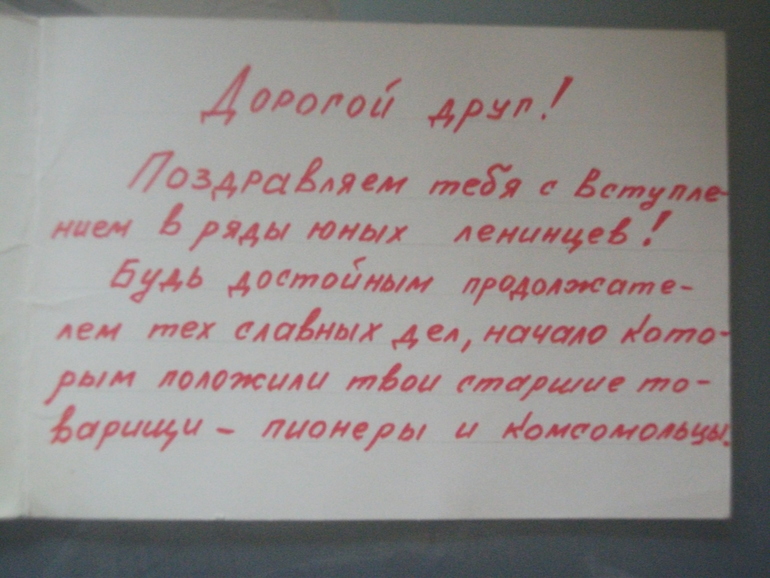 Дорогой друг!
Поздравляем тебя с вступле-
нием в ряды юных ленинцев!
Будь достойным продолжате-
лем тех славных дел, начало кото-
рым положили твои старшие то-
варищи - пионеры и комсомольцы.